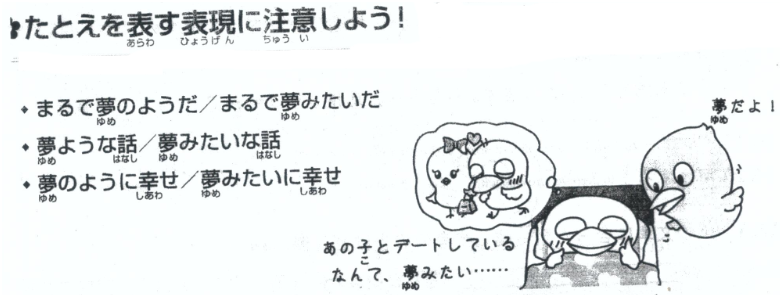 たとえを表す表現に注意しよう!
あらわ ひょうげん ちゅう い
◆ まるで夢のようだ／まるで夢みたいだ
ゆめ ゆめ
◆ 夢ような話／夢みたいな話
ゆめ はなし ゆめ はなし
◆ 夢のように幸せ／夢みたいに幸せ
ゆめ しあわ ゆめ しあわ
夢だよ!
ゆめ
あの子とデートしている
こ
なんて、夢みたい……
ゆめ